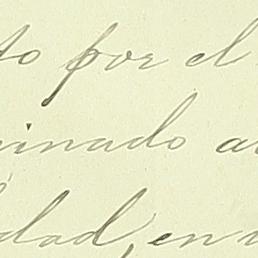 to por el
inado a
dad, en